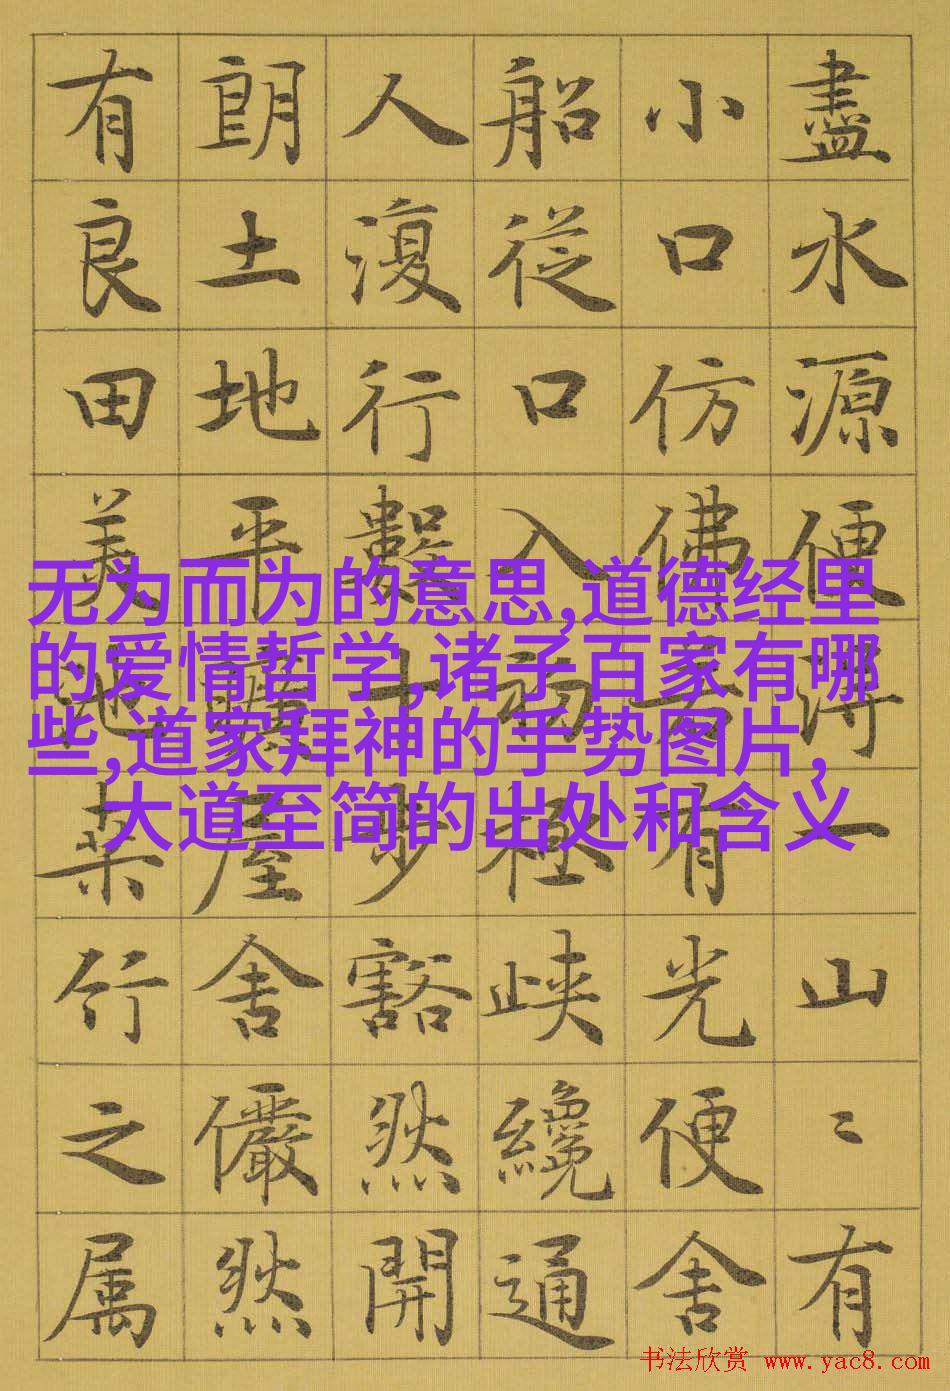 盡水源便得一山〻有
小口仿佛若有光便舍
船從口入初極峽纔通
人復行數十步豁然開
朗土地平曠屋舍儼然
有良田美池桑竹之属
无为而为的意思,道德经里
的爱情哲学,诸子百家有哪
些,道家拜神的手势图片,
大道至简的出处和含义
书法欣赏 www.yac8.com